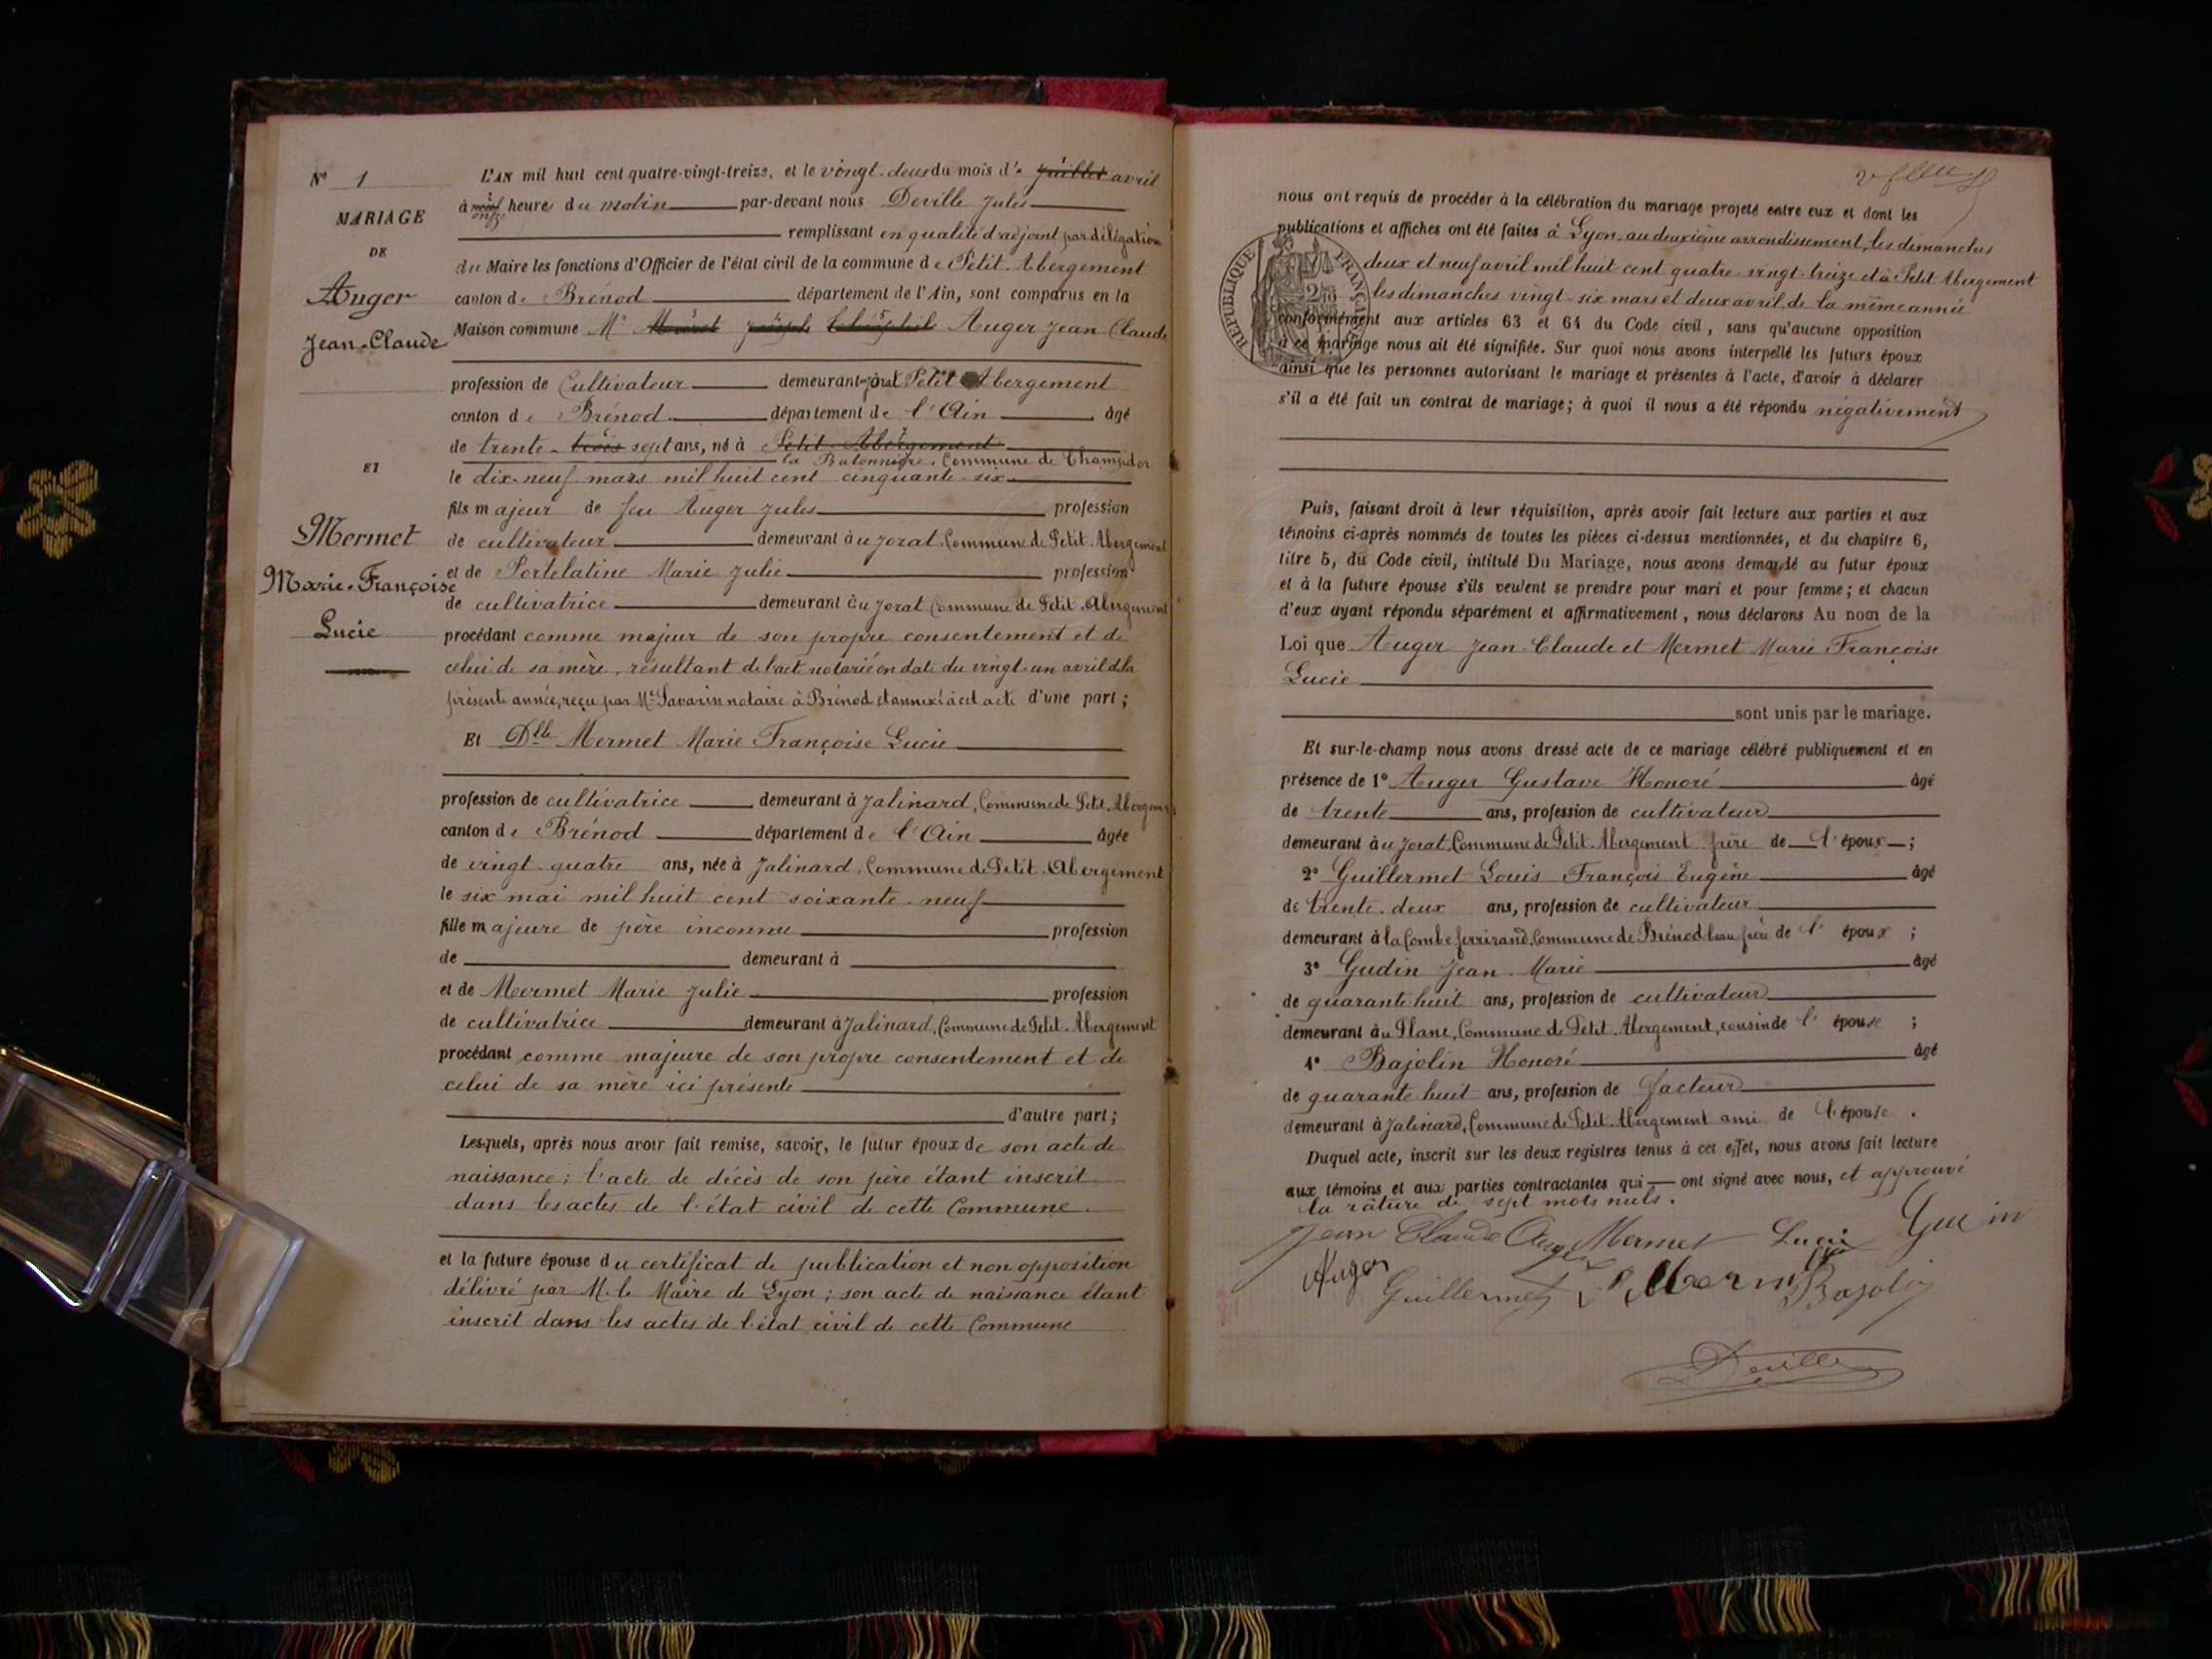 N° 1
MARIAGE
DE
Auger
Jean-Claude
ET
Mermet
Marie-Françoise
Lucie
L'AN mil huit cent quatre-vingt-treize, et le vingt-deux du mois d'e juillet avril
à neuf onze heure du matin par-devant nous Deville Jules
remplissant en qualité d'adjoint par délégation
du Maire les fonctions d'Officier de l'état civil de la commune de Petit-Abergement
canton de Brénod département de l'Ain, sont comparus en la
Maison commune Mr Auger Jean Claude
profession de Cultivateur demeurant à Jorat Petit Abergement
canton de Brénod département de l'Ain âgé
de trente-trois sept ans, né à Petit-Abergement
la Batonnière, Commune de Champdor
le dix-neuf mars mil huit cent cinquante-six
fils majeur de feu Auger Jules profession
de cultivateur demeurant à u Jorat Commune de Petit-Abergement
et de Portelatine Marie Julie profession
de cultivatrice demeurant à u Jorat Commune de Petit-Abergement
procédant comme majeur de son propre consentement et de
celui de sa mère, résultant de l'acte notarié en date du vingt-un avril de la
présente année, reçu par Me Savarin notaire à Brénod et annexé à cet acte d'une part;
Et Dlle Mermet Marie Françoise Lucie
profession de cultivatrice demeurant à Jalinard, Commune de Petit-Abergement
canton de Brénod département de l'Ain âgée
de vingt-quatre ans, née à Jalinard, Commune de Petit-Abergement
le six mai mil huit cent soixante-neuf
fille majeure de père inconnu profession
de demeurant à
et de Mermet Marie Julie profession
de cultivatrice demeurant à Jalinard, Commune de Petit-Abergement
procédant comme majeure de son propre consentement et de
celui de sa mère ici présente
d'autre part;
Lesquels, après nous avoir fait remise, savoir, le futur époux de son acte de
naissance; l'acte de décès de son père étant inscrit
dans les actes de l'état civil de cette Commune.
et la future épouse du certificat de publication et non opposition
délivré par M. le Maire de Lyon; son acte de naissance étant
inscrit dans les actes de l'état civil de cette Commune
nous ont requis de procéder à la célébration du mariage projeté entre eux et dont les
publications et affiches ont été faites à Lyon, au deuxième arrondissement, les dimanches
deux et neuf avril mil huit cent quatre-vingt-treize et à Petit Abergement
les dimanches vingt-six mars et deux avril de la même année
RÉPUBLIQUE FRANÇAISE
conformément aux articles 63 et 64 du Code civil, sans qu'aucune opposition
à ce mariage nous ait été signifiée. Sur quoi nous avons interpellé les futurs époux
ainsi que les personnes autorisant le mariage et présentes à l'acte, d'avoir à déclarer
s'il a été fait un contrat de mariage; à quoi il nous a été répondu négativement
Puis, faisant droit à leur réquisition, après avoir fait lecture aux parties et aux
témoins ci-après nommés de toutes les pièces ci-dessus mentionnées, et du chapitre 6,
titre 5, du Code civil, intitulé Du Mariage, nous avons demandé au futur époux
et à la future épouse s'ils veulent se prendre pour mari et pour femme; et chacun
d'eux ayant répondu séparément et affirmativement, nous déclarons Au nom de la
Loi que Auger Jean-Claude et Mermet Marie Françoise
Lucie
sont unis par le mariage.
Et sur-le-champ nous avons dressé acte de ce mariage célébré publiquement et en
présence de 1° Auger Gustave Honoré âgé
de trente ans, profession de cultivateur
demeurant à u Jorat, Commune de Petit-Abergement frère de l'époux;
2° Guillermet Louis François Eugène âgé
de trente-deux ans, profession de cultivateur
demeurant à la Combe ferrirand, Commune de Brénod beau frère de l'époux;
3° Gudin Jean-Marie âgé
de quarante huit ans, profession de cultivateur
demeurant à u Plane, Commune de Petit-Abergement, cousin de l'épouse;
4° Bajolin Honoré âgé
de quarante huit ans, profession de facteur
demeurant à Jalinard, Commune de Petit-Abergement ami de l'épouse.
Duquel acte, inscrit sur les deux registres tenus à cet effet, nous avons fait lecture
aux témoins et aux parties contractantes qui ont signé avec nous, et approuvé
la râture de sept mots nuls.
Jean Claude Auger Mermet Lucie
Auger Guillermet Bajolin
Deville